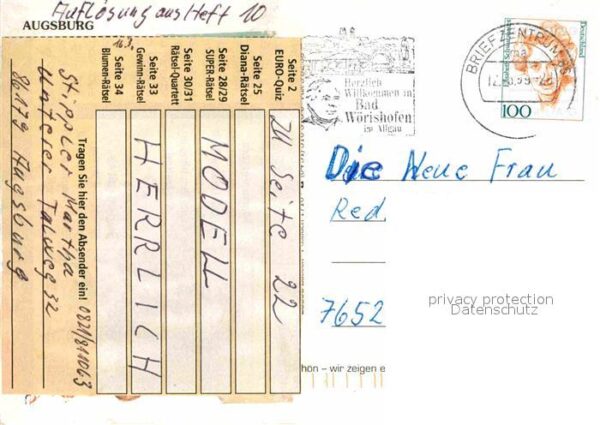 Auflösung aus Heft 10
AUGSBURG
Seite 2
EURO-Quiz
ZU Seite 22
Seite 25
Diana-Rätsel
Seite 28/29
SUPER-Rätsel
MODELL
Seite 30/31
Rätsel-Quartett
Seite 33
Gewinn-Rätsel
HERRLICH
Seite 34
Blumen-Rätsel
Tragen Sie hier den Absender ein! 0821/811063
Stippler Martha
Unterer Talweg 32
86179 Augsburg
Herzlich
Willkommen in
Bad
Wörishofen
im Allgäu
BRIEFZENTRUM 86
Deutschland
100
Die Neue Frau
Red.
7652
privacy protection
Datenschutz
hön – wir zeigen e